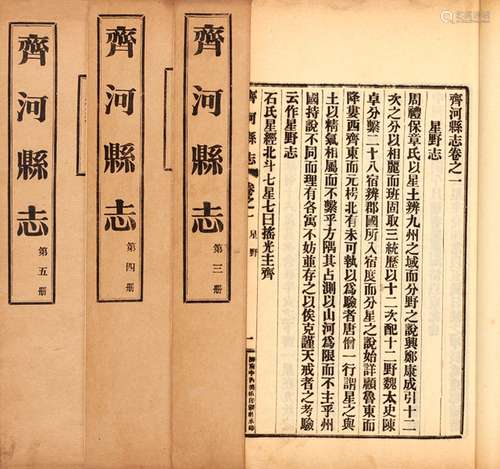 齊河縣志
第五册
齊河縣志
第四册
齊河縣志
第三册
齊河縣志卷之一
星野志
周禮保章氏以星土辨九州之域而分野之說興鄭康成引十二
次之分以相麗而班固取三統歷以十二次配十二野魏太史陳
卓分繫二十八宿辨郡國所入宿度而分星之說始詳顧魯東而
降婁西齊東而元枵北有未可執以為驗者唐僧一行謂星之與
土以精氣相屬而不繫乎方隅其占測以山河為限而不主乎州
國持說不同而理有各寓不妨並存之以俟克謹天戒者之考驗
云作星野志
石氏星經北斗七星七曰搖光主齊
齊河縣志
卷之一
星野
一